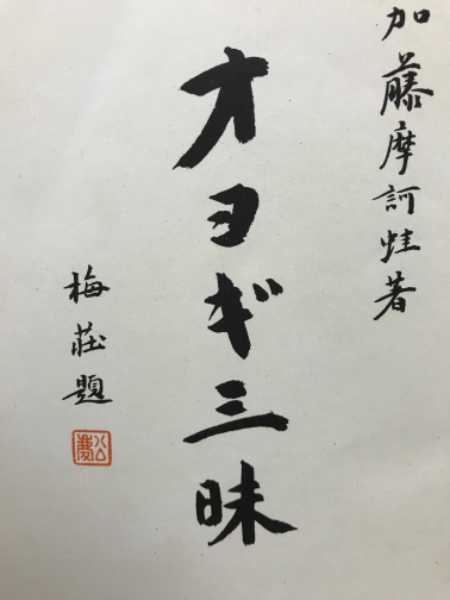 加藤摩訶蛙著
オヨギ三昧
梅莊題